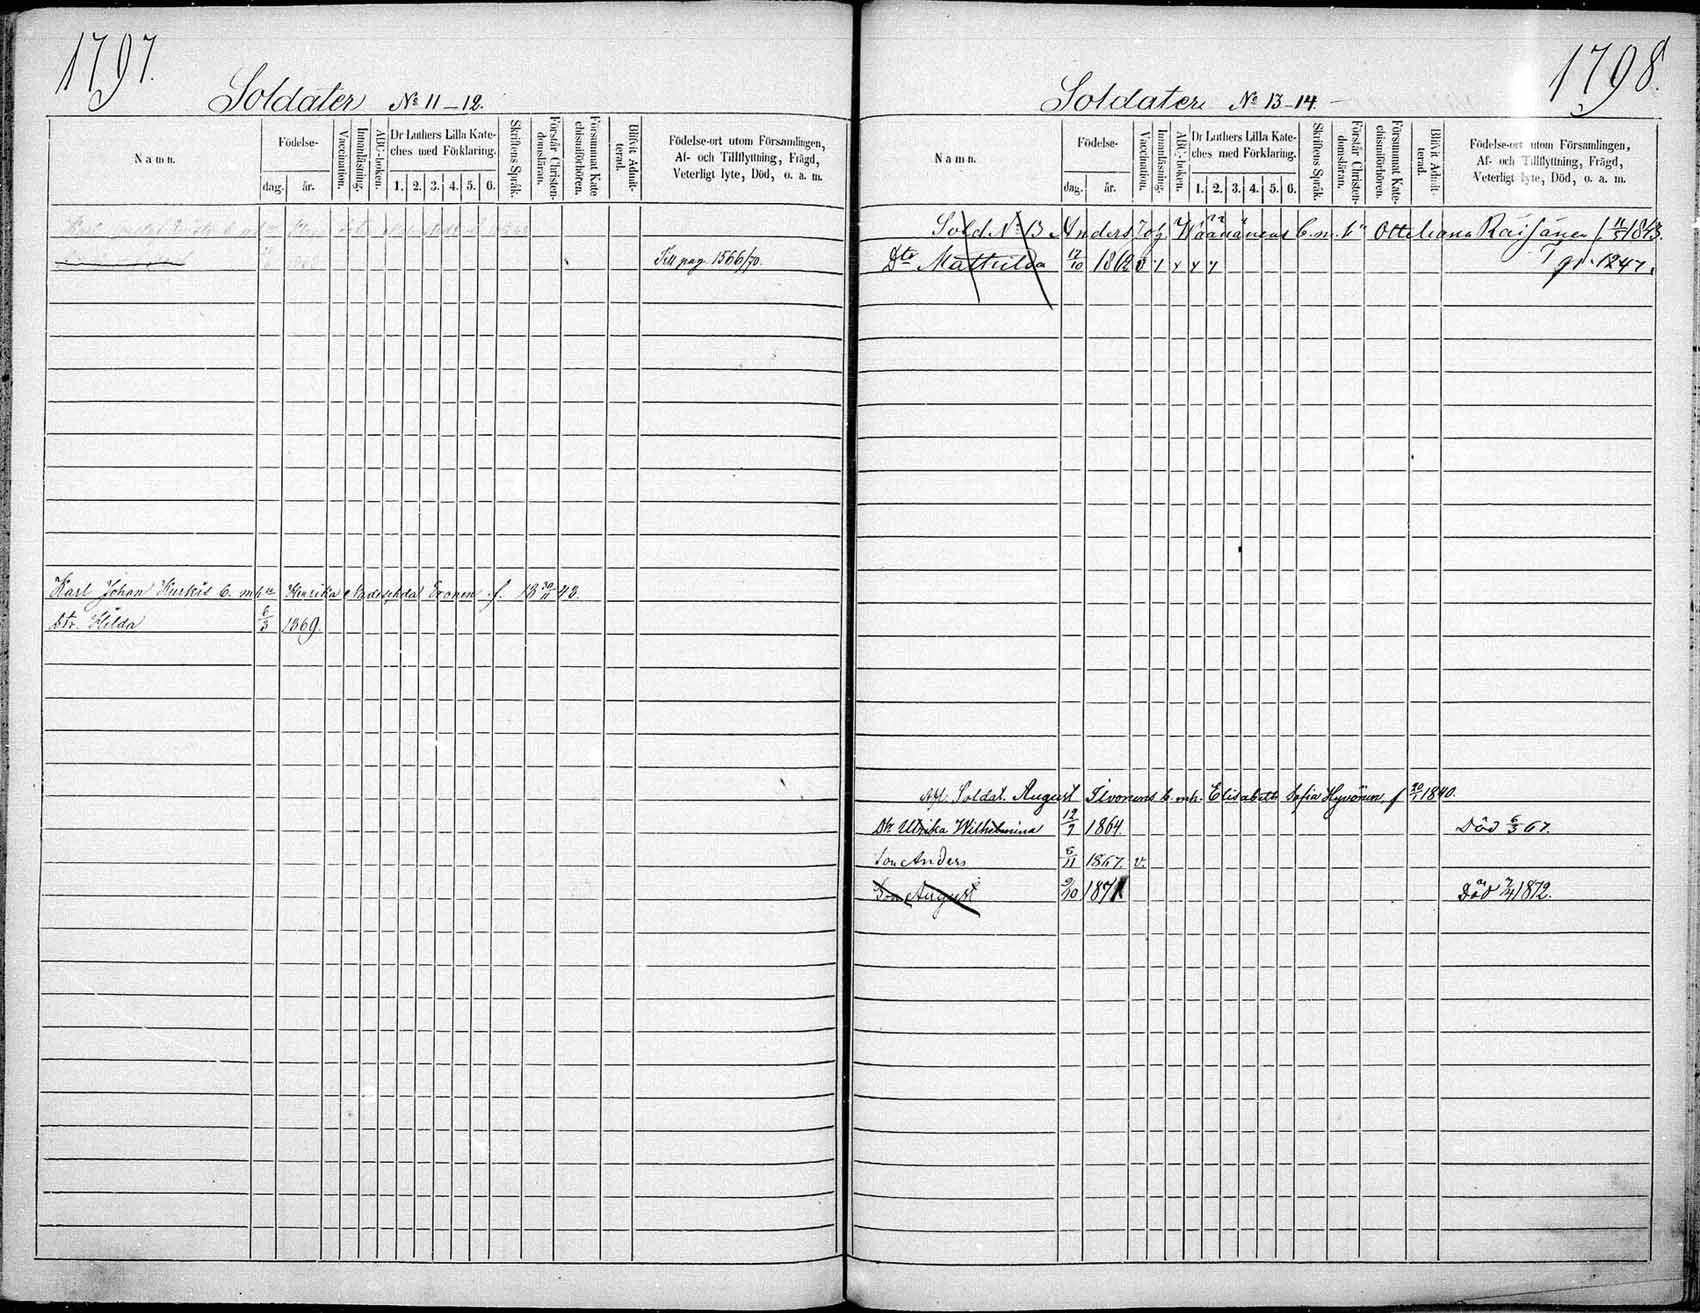 1797.
Soldater № 11–12.
Namn.
Födelse-
dag.
år.
Vaccination.
Innanläsning.
ABC-boken.
Dr Luthers Lilla Kate-
ches med Förklaring.
1. 2. 3. 4. 5. 6.
Skriftens Språk.
Förstår Christen-
domsläran.
Försummat Kate
chismiförhören.
Blifvit Admit-
terad.
Födelse-ort utom Församlingen,
Af- och Tillflyttning, Frägd,
Veterligt lyte, Död, o. a. m.
Till pag. 1566/70.
Karl Johan Kurkis E. mh Henrika Nadeschda f. 18 30/11 43.
Dtr. Hilda 6/3 1869.
1798.
Soldater № 13–14.
Namn.
Födelse-
dag.
år.
Vaccination.
Innanläsning.
ABC-boken.
Dr Luthers Lilla Kate-
ches med Förklaring.
1. 2. 3. 4. 5. 6.
Skriftens Språk.
Förstår Christen-
domsläran.
Försummat Kate-
chismiförhören.
Blifvit Admit-
terad.
Födelse-ort utom Församlingen,
Af- och Tillflyttning, Frägd,
Veterligt lyte, Död, o. a. m.
Sold № 13 Anders Joh Wäänänens E. m. Otteliana Räisänen f. 11/5 1843.
Dtr Mathilda 17/10 1862 v pg. 1247.
Afl. Soldat. August Ilvonens E. mh. Elisabeth Sofia Hyvönen f 20/1 1840.
Dtr Ulrika Wilhelmina 12/7 1864. Död 6/3 67.
Son Anders 6/11 1867. v.
Son August 9/10 1871 Död 7/4 1872.